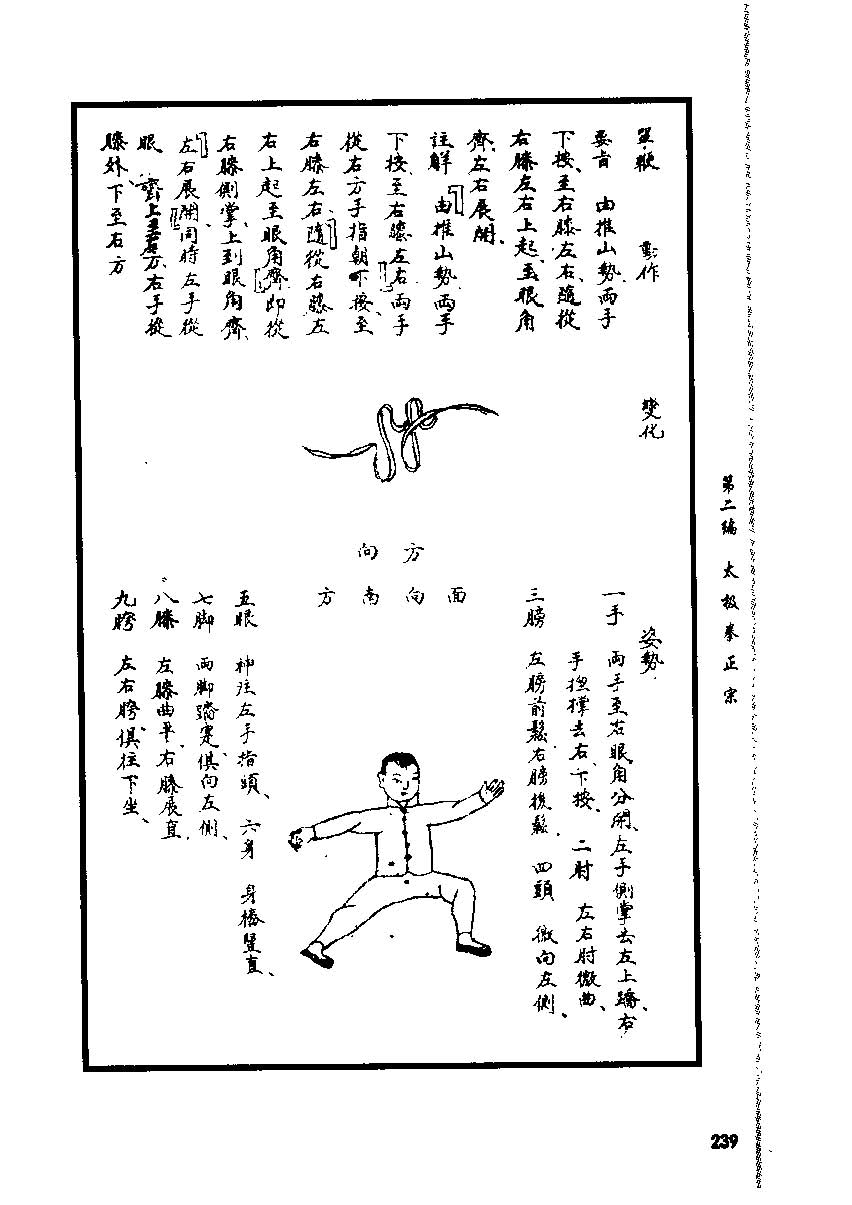 單鞭 動作
要旨 由推山勢、兩手
下按、至右膝左右、隨從
右膝左右上起、至眼角
齊、左右展開、
註解 「由推山勢、兩手
下按、至右膝左右」兩手
從右方手指朝下、按至
右膝左右、「隨從右膝左
右上起至眼角齊」即從
右膝側掌、上到眼角齊、
「左右展開」同時左手從
眼齊上至左方、右手從
膝外下至右方
變化
方向
面向南方
姿勢
一手 兩手至右眼角分開、左手側掌去左上蹻、右
手撐去右、下按、 二肘 左右肘微曲、
三膀 左膀前鬆、右膀後鬆、 四頭 微向左側、
五眼 神注左手指頭、 六身 身樁豎直、
七脚 兩脚踏寔、俱向左側、
八膝 左膝曲平、右膝展直、
九胯 左右胯俱往下坐、
第二編 太极拳正宗
239